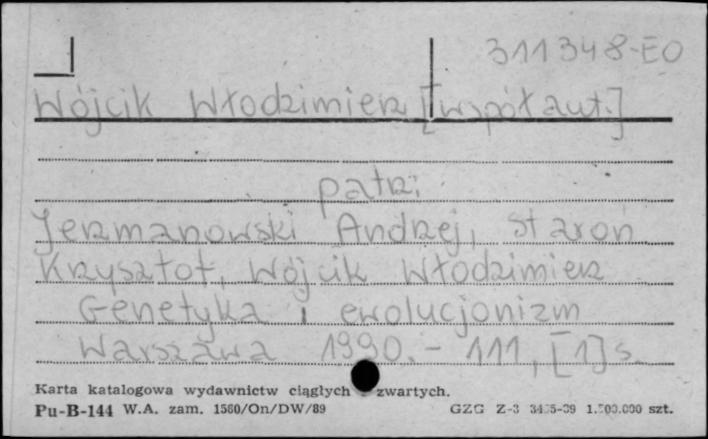 311348-EO
Wójcik Włodzimierz [współaut.]
patrz:
Jerzmanowski Andrzej, Staroń
Krzysztof, Wójcik Włodzimierz
Genetyka i ewolucjonizm
Warszawa 1990. - 111, [1] s.
Karta katalogowa wydawnictw ciągłych zwartych.
Pu-B-144 W.A. zam. 1560/On/DW/89 GZG Z-3 szt.